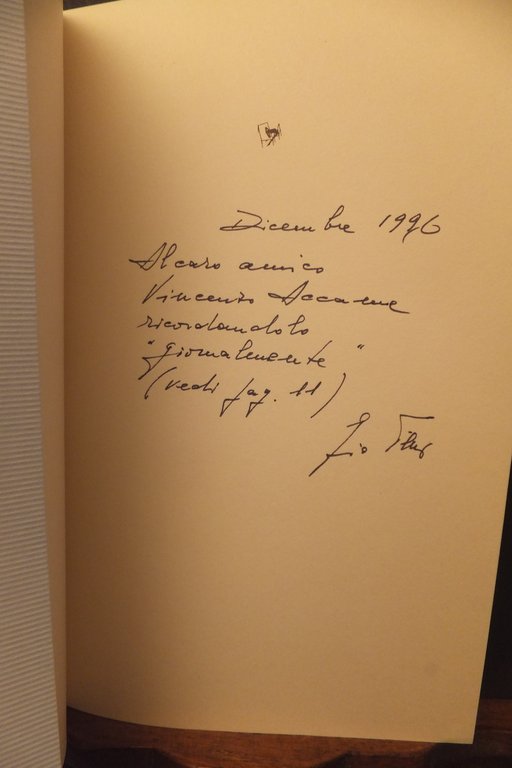 Dicembre 1996
Al caro amico
Vincenzo Accame
ricordandolo
"giornalmente"
(vedi pag. 11)
Gio